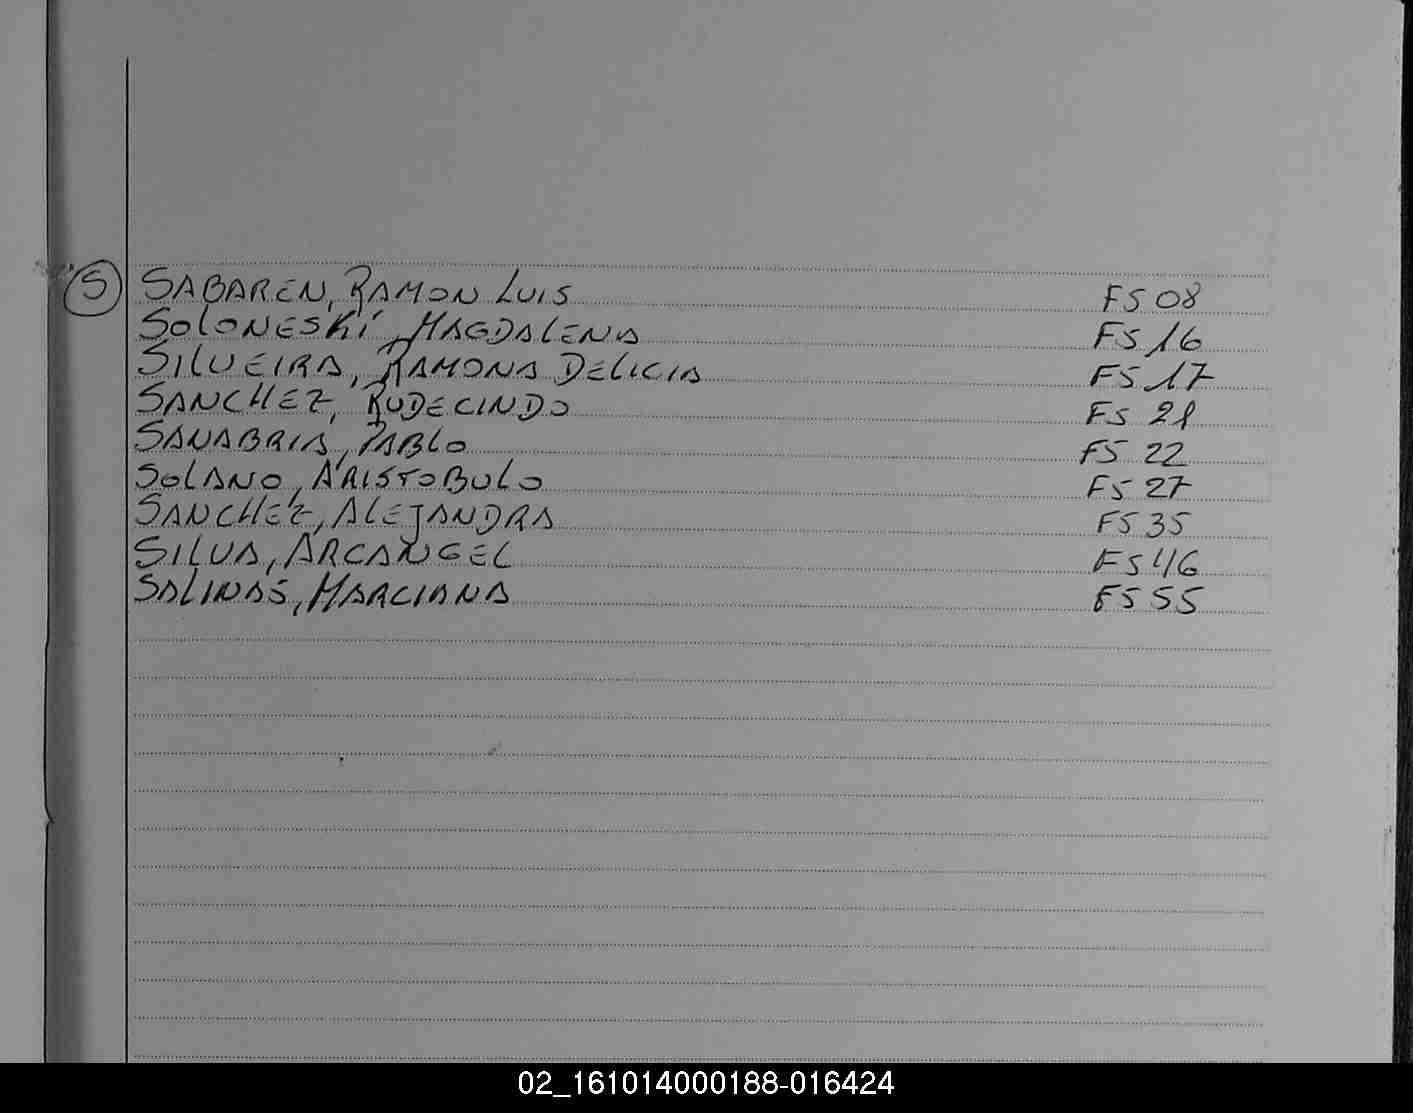 S SABAREN, RAMON LUIS FS 08
SOLONESKI, MAGDALENA FS 16
SILVEIRA, RAMONA DELICIA FS 17
SANCHEZ, RUDECINDO FS 21
SANABRIA, PABLO FS 22
SOLANO, ARISTOBULO FS 27
SANCHEZ, ALEJANDRA FS 35
SILVA, ARCANGEL FS 46
SALINAS, MARCIANA FS 55
02_161014000188-016424